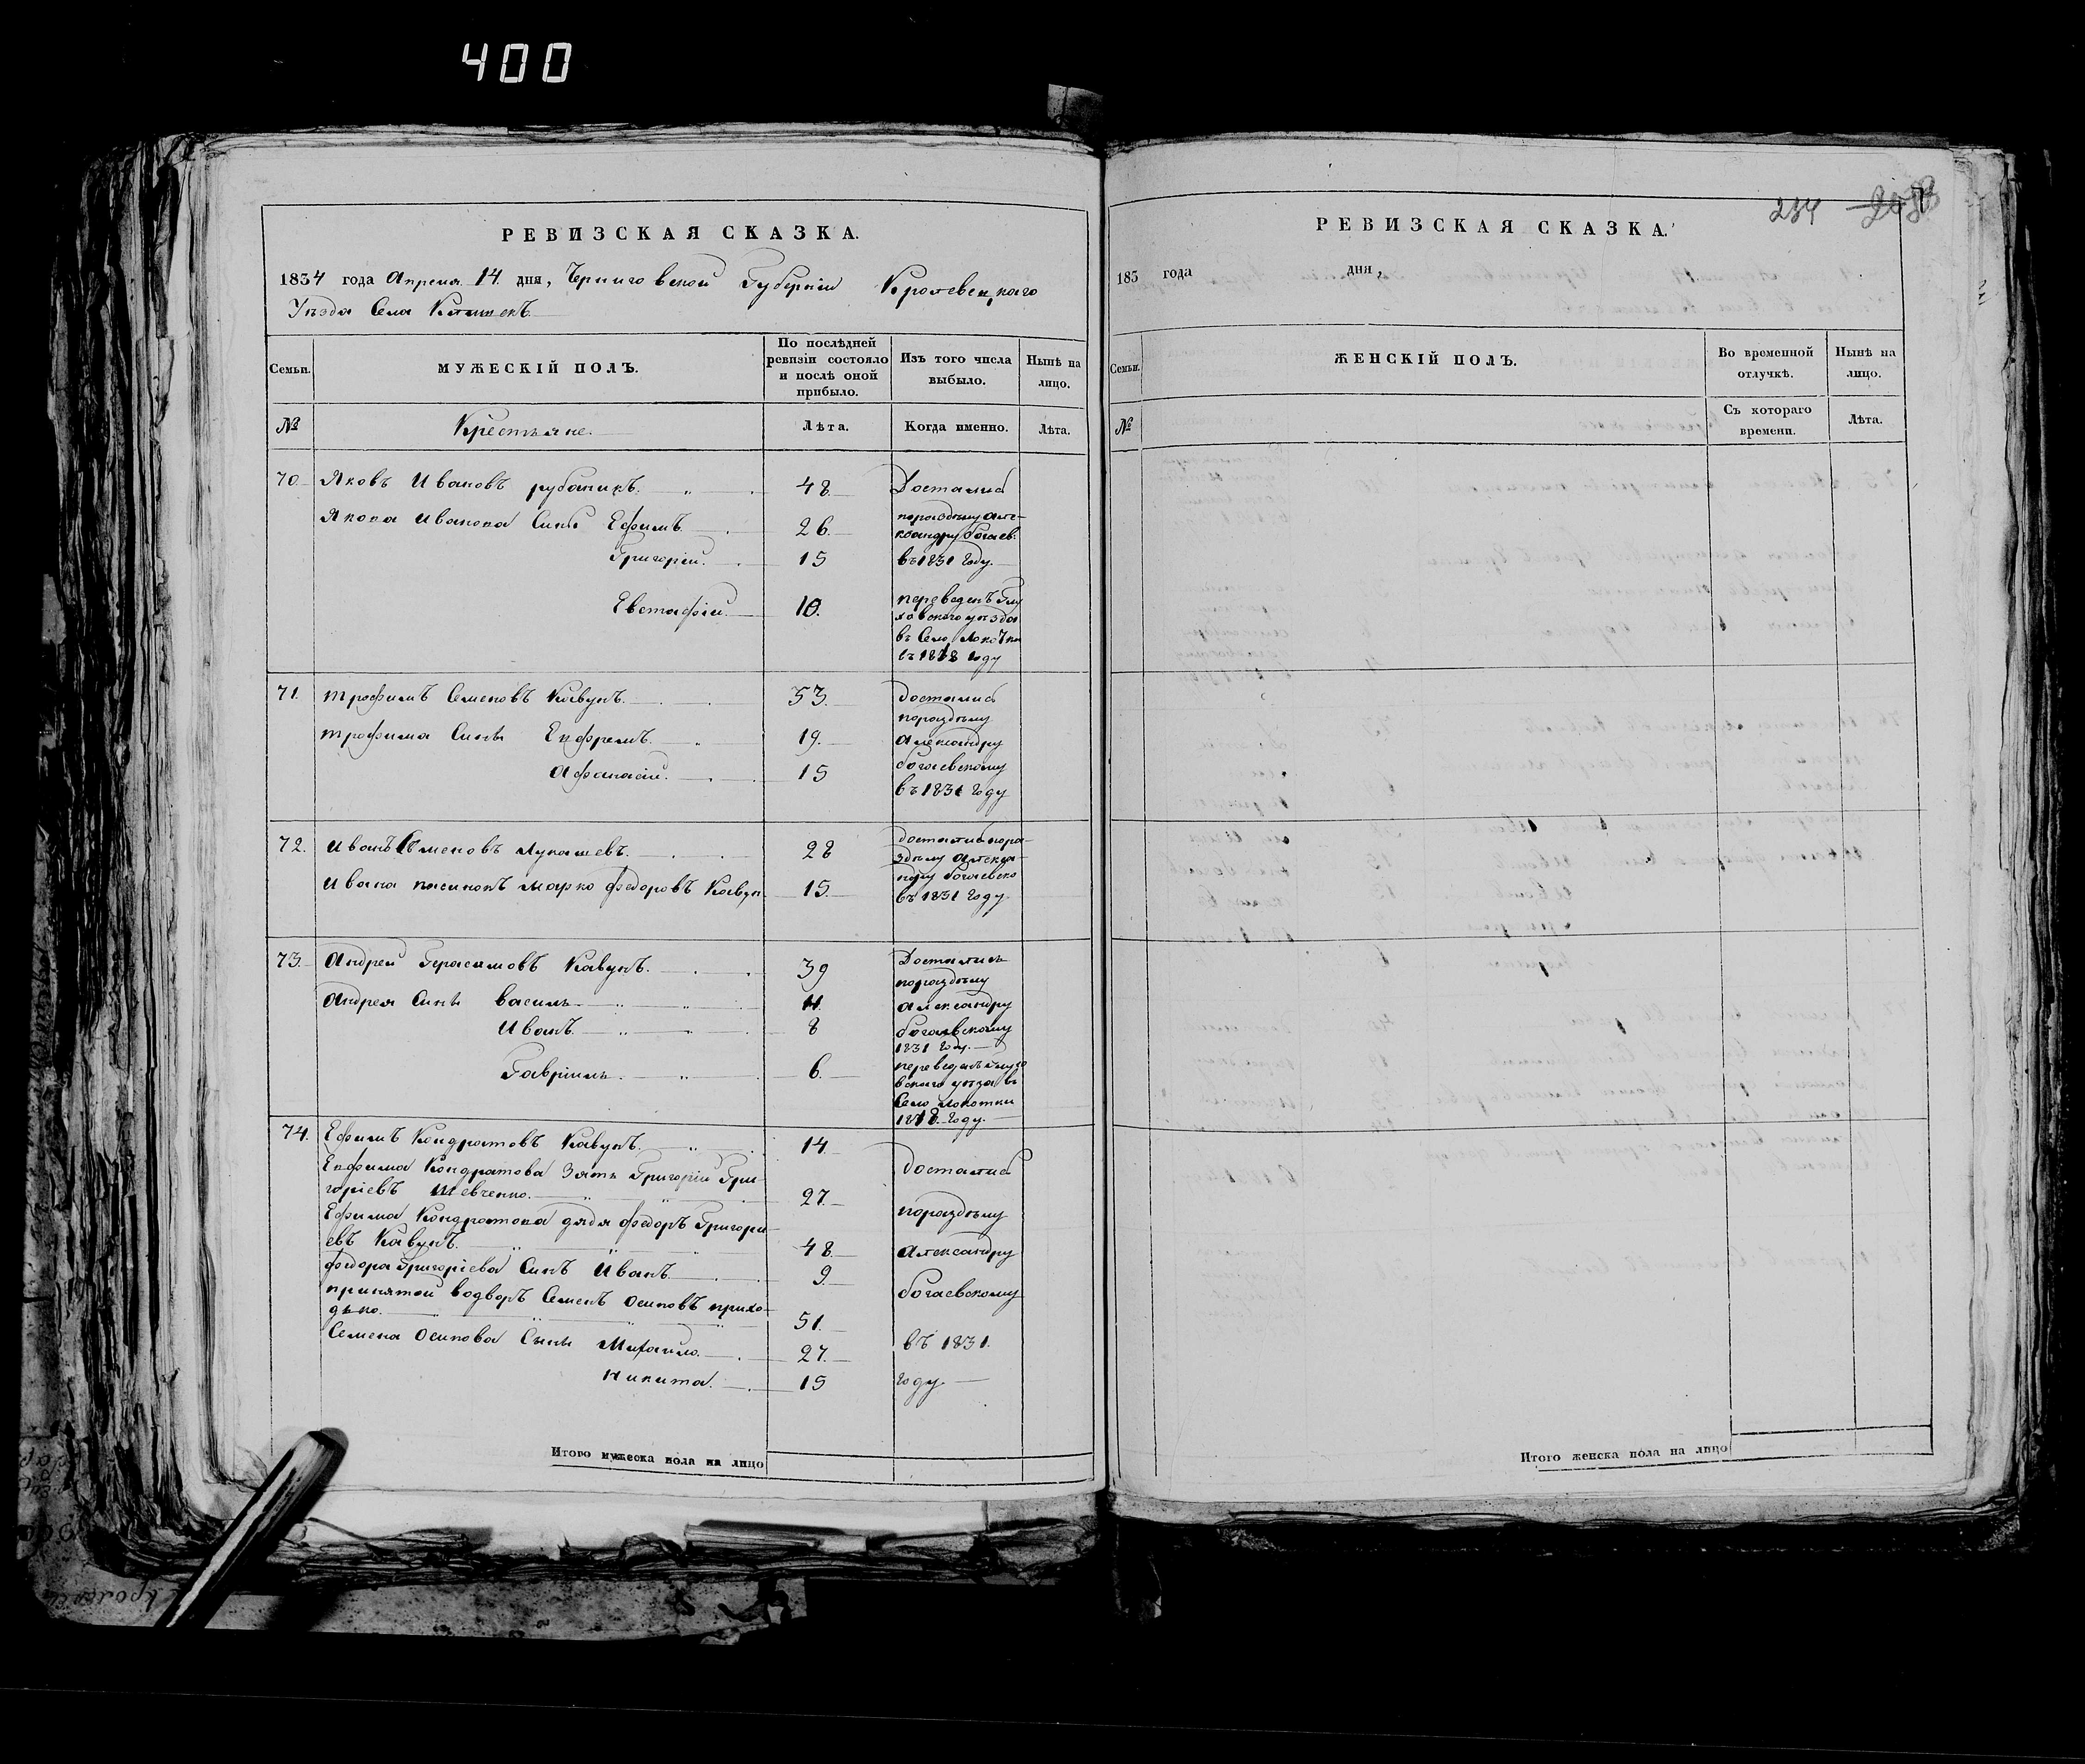 400
РЕВИЗСКАЯ СКАЗКА.
1834 года Апреля 14. дня, Черниговской Губерніи Кролевецкаго
Уѣзда Села
Семьи.
МУЖЕСКІЙ ПОЛЪ.
По послѣдней ревизіи состояло и послѣ оной прибыло.
Изъ того числа выбыло.
Нынѣ на лицо.
№
Крестьяне.
Лѣта.
Когда именно.
Лѣта.
70. Яковъ Ивановъ 48. Достались
Якова Иванова Сины Ефимъ 26. поразделу Але-
ксандру Богаев:
Григорій. 15 въ 1831 Году.
Евстафій. 10. переведенъ Глу
ховского уезда
въ Село Локотки
въ 1818 Году
71. Трофимъ Семеновъ Кавунъ. 53. достались
поразделу
Трофима Сины Ефремъ. 19. Александру
Афанасій. 15 богаевскому
въ 1831 Году
72. Иванъ Семеновъ Лукашевъ. 28 достались пора-
зделу Алекса-
ндру богаевско
Ивана пасинокъ Марко федоровъ Кавун. 15. въ 1831 Году.
73. Андрей Герасимовъ Кавунъ. 39 Достались
поразделу
Андрея Сины Василь 11. Александру
Иванъ. 8 богаевскому
1831 Году.
Гавріилъ. 6. переведенъ Глухо
вского уезда въ
Село Локотки
1818. Году.
74. Ефимъ Кондратовъ Кавунъ. 14.
Ефима Кондратова Зять Григорій Гри- достались
горіевъ Шевченко. 27.
Ефима Кондратова дядя федоръ Григори- поразделу
евъ Кавунъ. 48. Александру
федора Григоріева Синъ Иванъ. 9.
принятой водворъ Семенъ Осиповъ прихо- богаевскому
дько. 51.
Семена Осипова Сины Михайло. 27. въ 1831.
Никита. 15 году.
Итого мужеска пола на лицо
234
РЕВИЗСКАЯ СКАЗКА.
183 года дня,
Семьи.
ЖЕНСКІЙ ПОЛЪ.
Во временной отлучкѣ.
Нынѣ на лицо.
№
Съ котораго времени.
Лѣта.
Итого женска пола на лицо